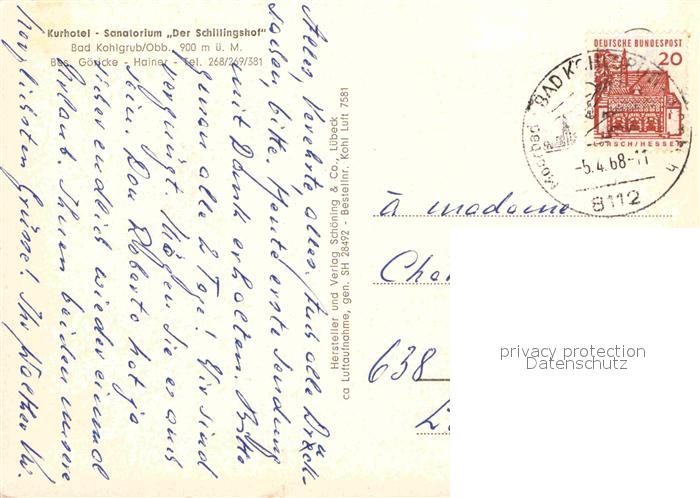 Kurhotel - Sanatorium „Der Schillingshof"
Bad Kohlgrub/Obb., 900 m ü. M.
Bes. Göricke - Hainer - Tel. 268/269/381
Alles, Verehrte, alles. Auch alle Druck-
sachen, bitte. Heute erste Sendung
mit Dank erhalten. Bitte
genau alle 2 Tage! Wir sind
vergnügt. Mögen Sie es auch
sein. Don Roberto hat ja
sicher endlich wieder einmal
Urlaub. Ihnen beiden unsere
herzlichsten Grüsse! Ihr
Hersteller und Verlag Schöning & Co., Lübeck
ca Luftaufnahme, gen. SH 28492 - Bestellnr. Kohl Luft 7581
DEUTSCHE BUNDESPOST
20
LORSCH/HESSEN
BAD KOHLGRUB
-5.4.68-11
8112
à madame
638
privacy protection
Datenschutz